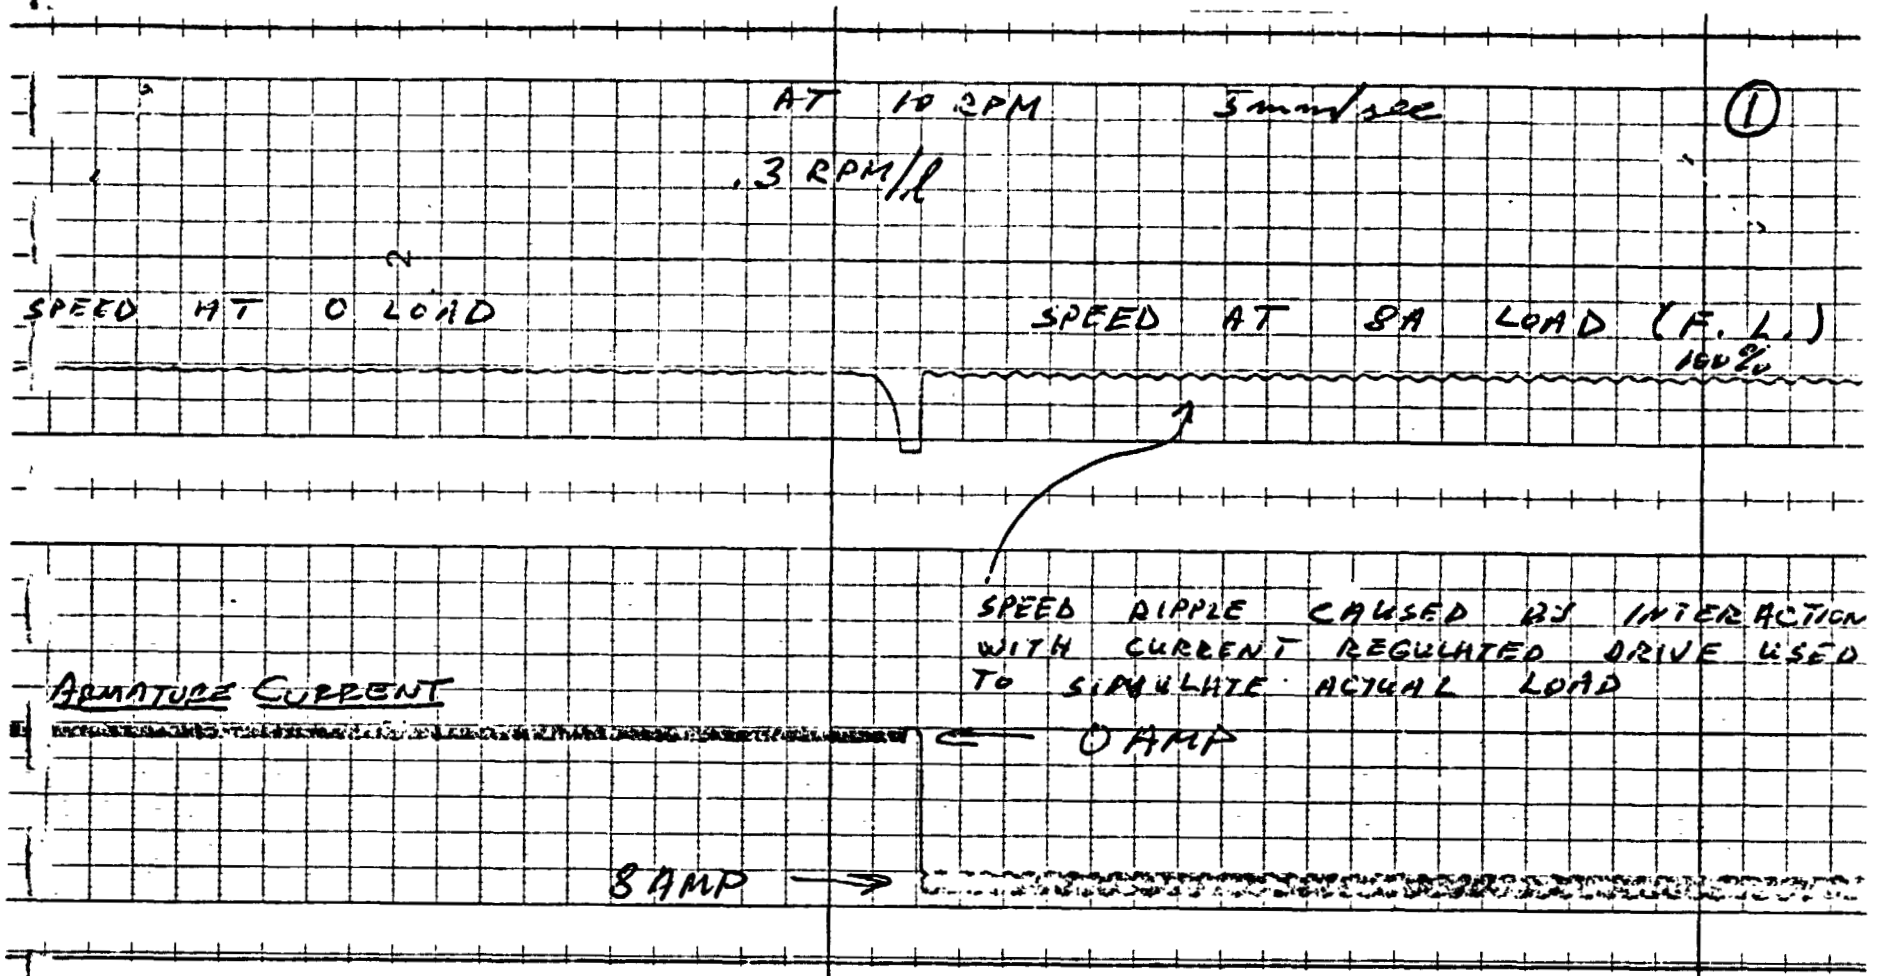 AT 10 RPM 5mm/sec ①
.3 RPM/l
2
SPEED AT 0 LOAD
SPEED AT 8A LOAD (F. L.)
100%
SPEED RIPPLE CAUSED BY INTERACTION
WITH CURRENT REGULATED DRIVE USED
TO SIMULATE ACTUAL LOAD
ARMATURE CURRENT
0 AMP
8 AMP